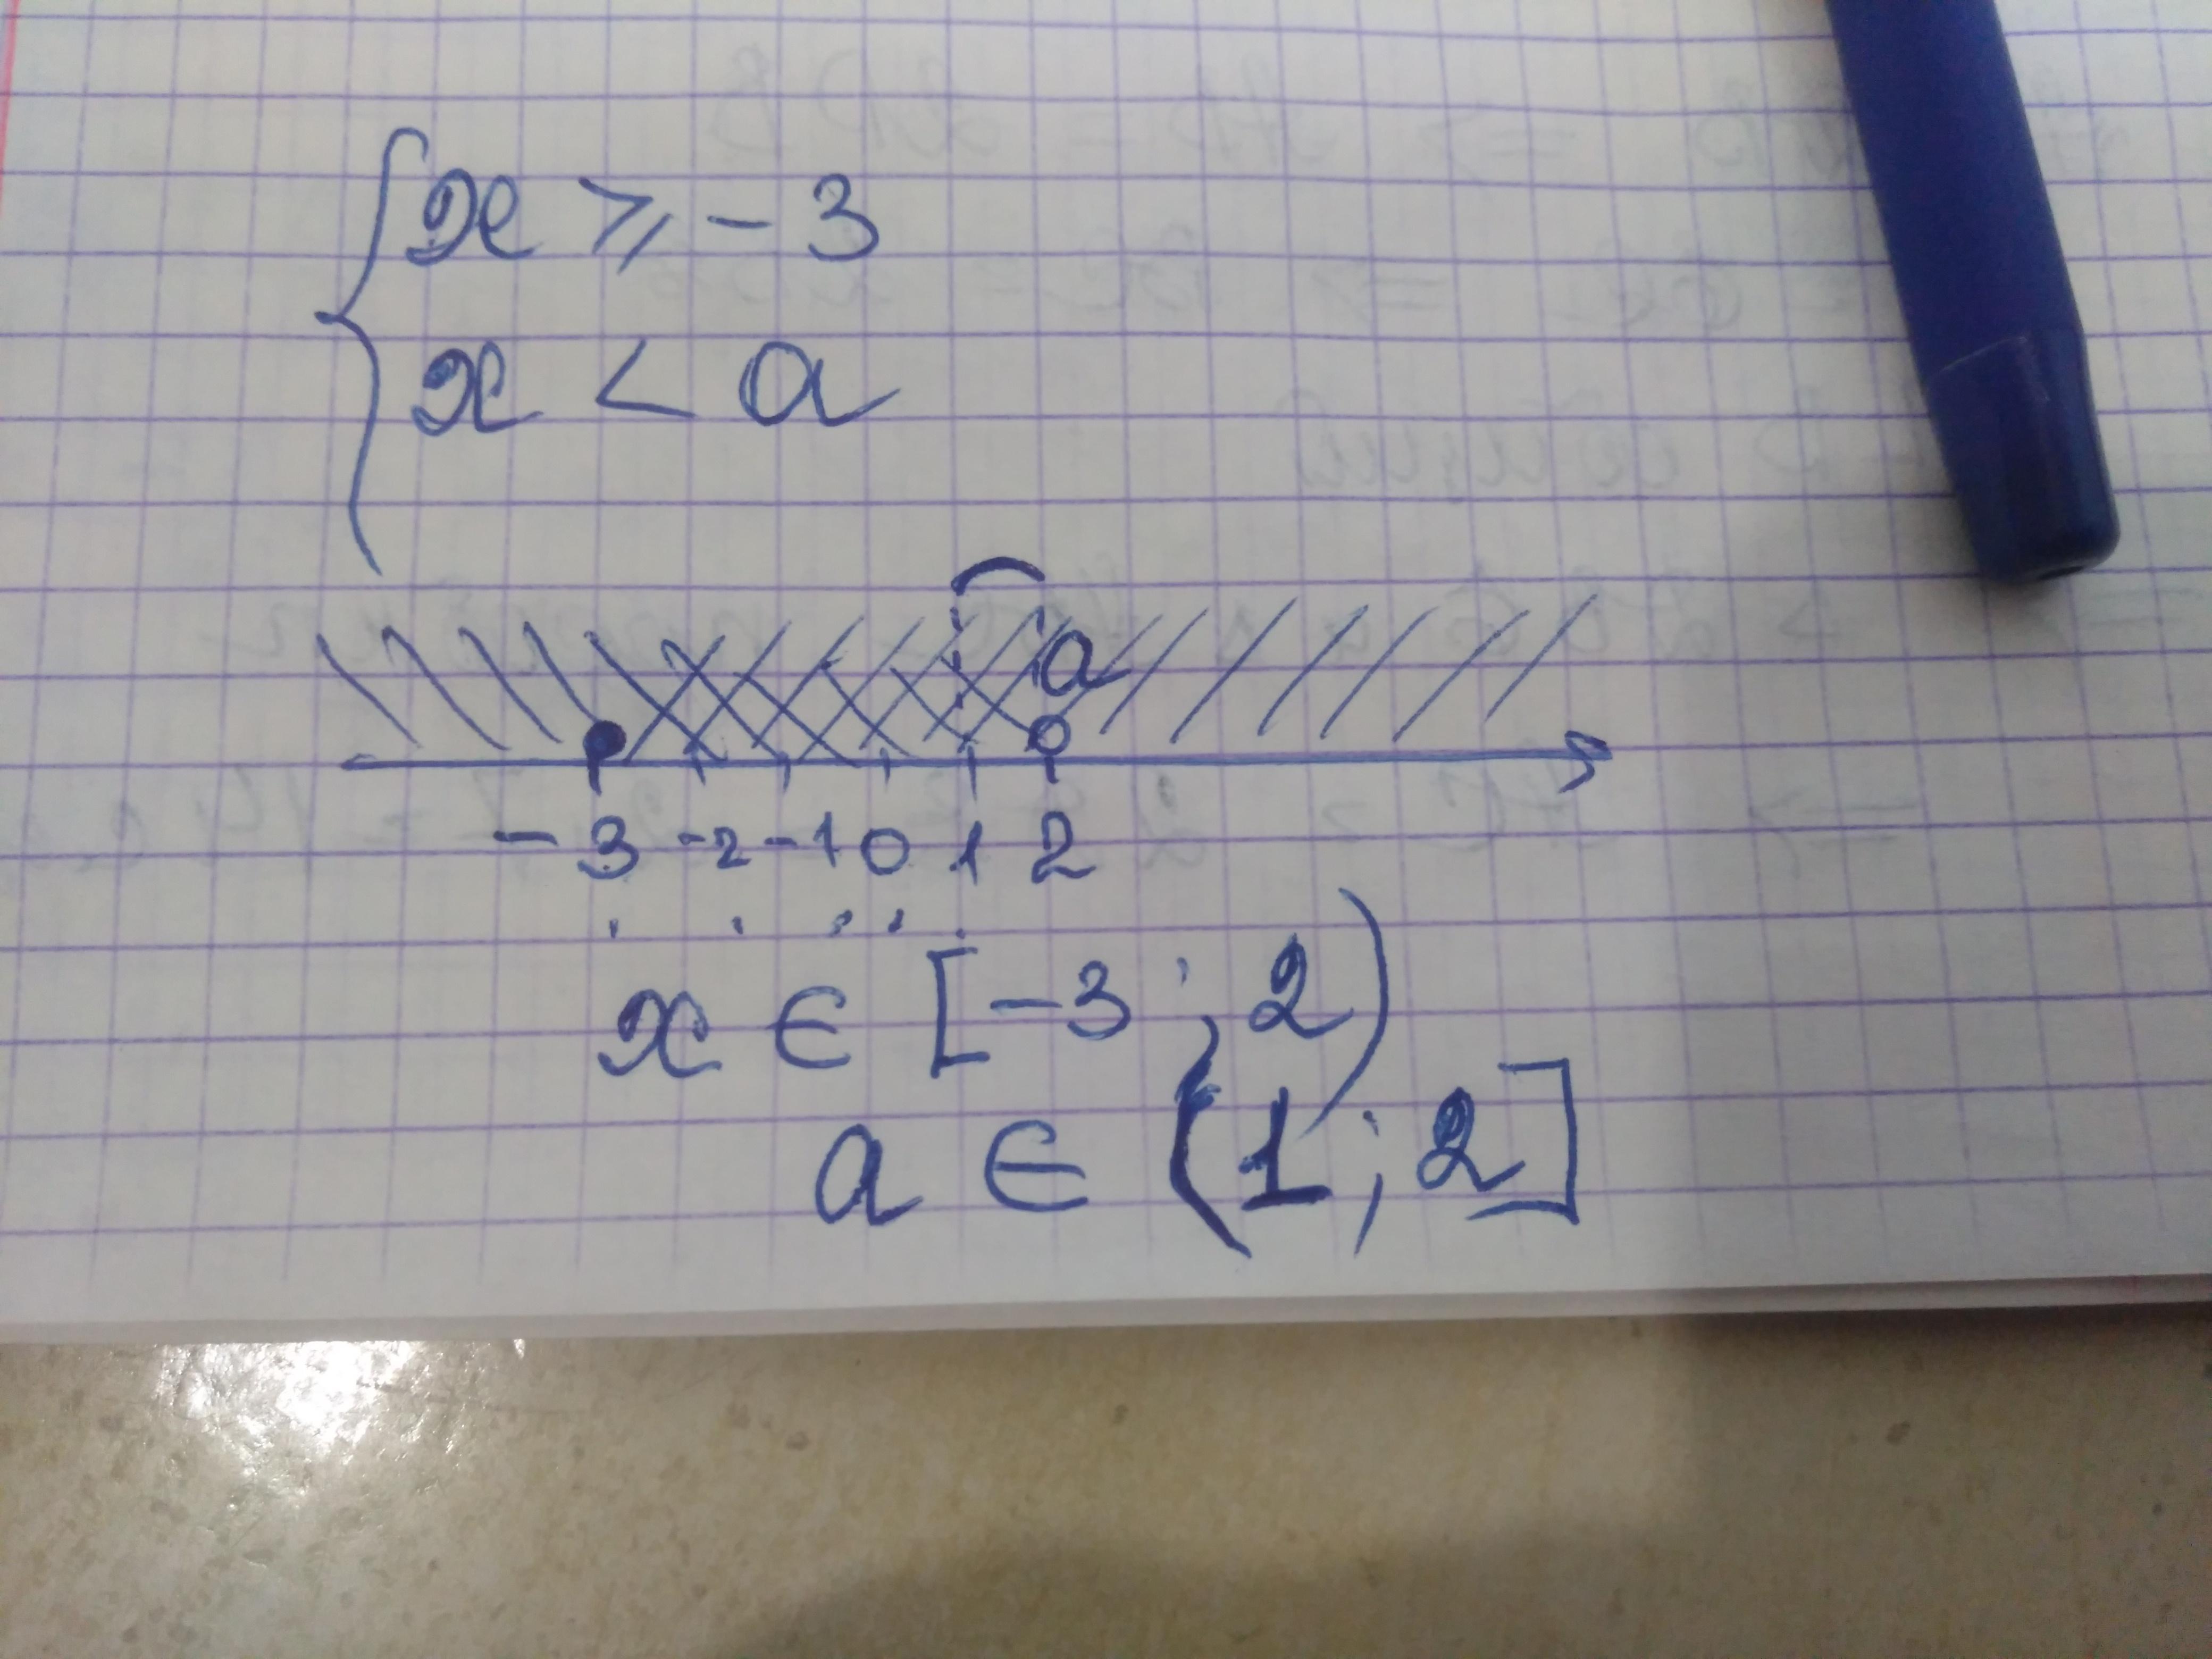 x ⩾ -3
x < a
a
-3 -2 -1 0 1 2
x ∈ [-3; 2)
a ∈ (1; 2]